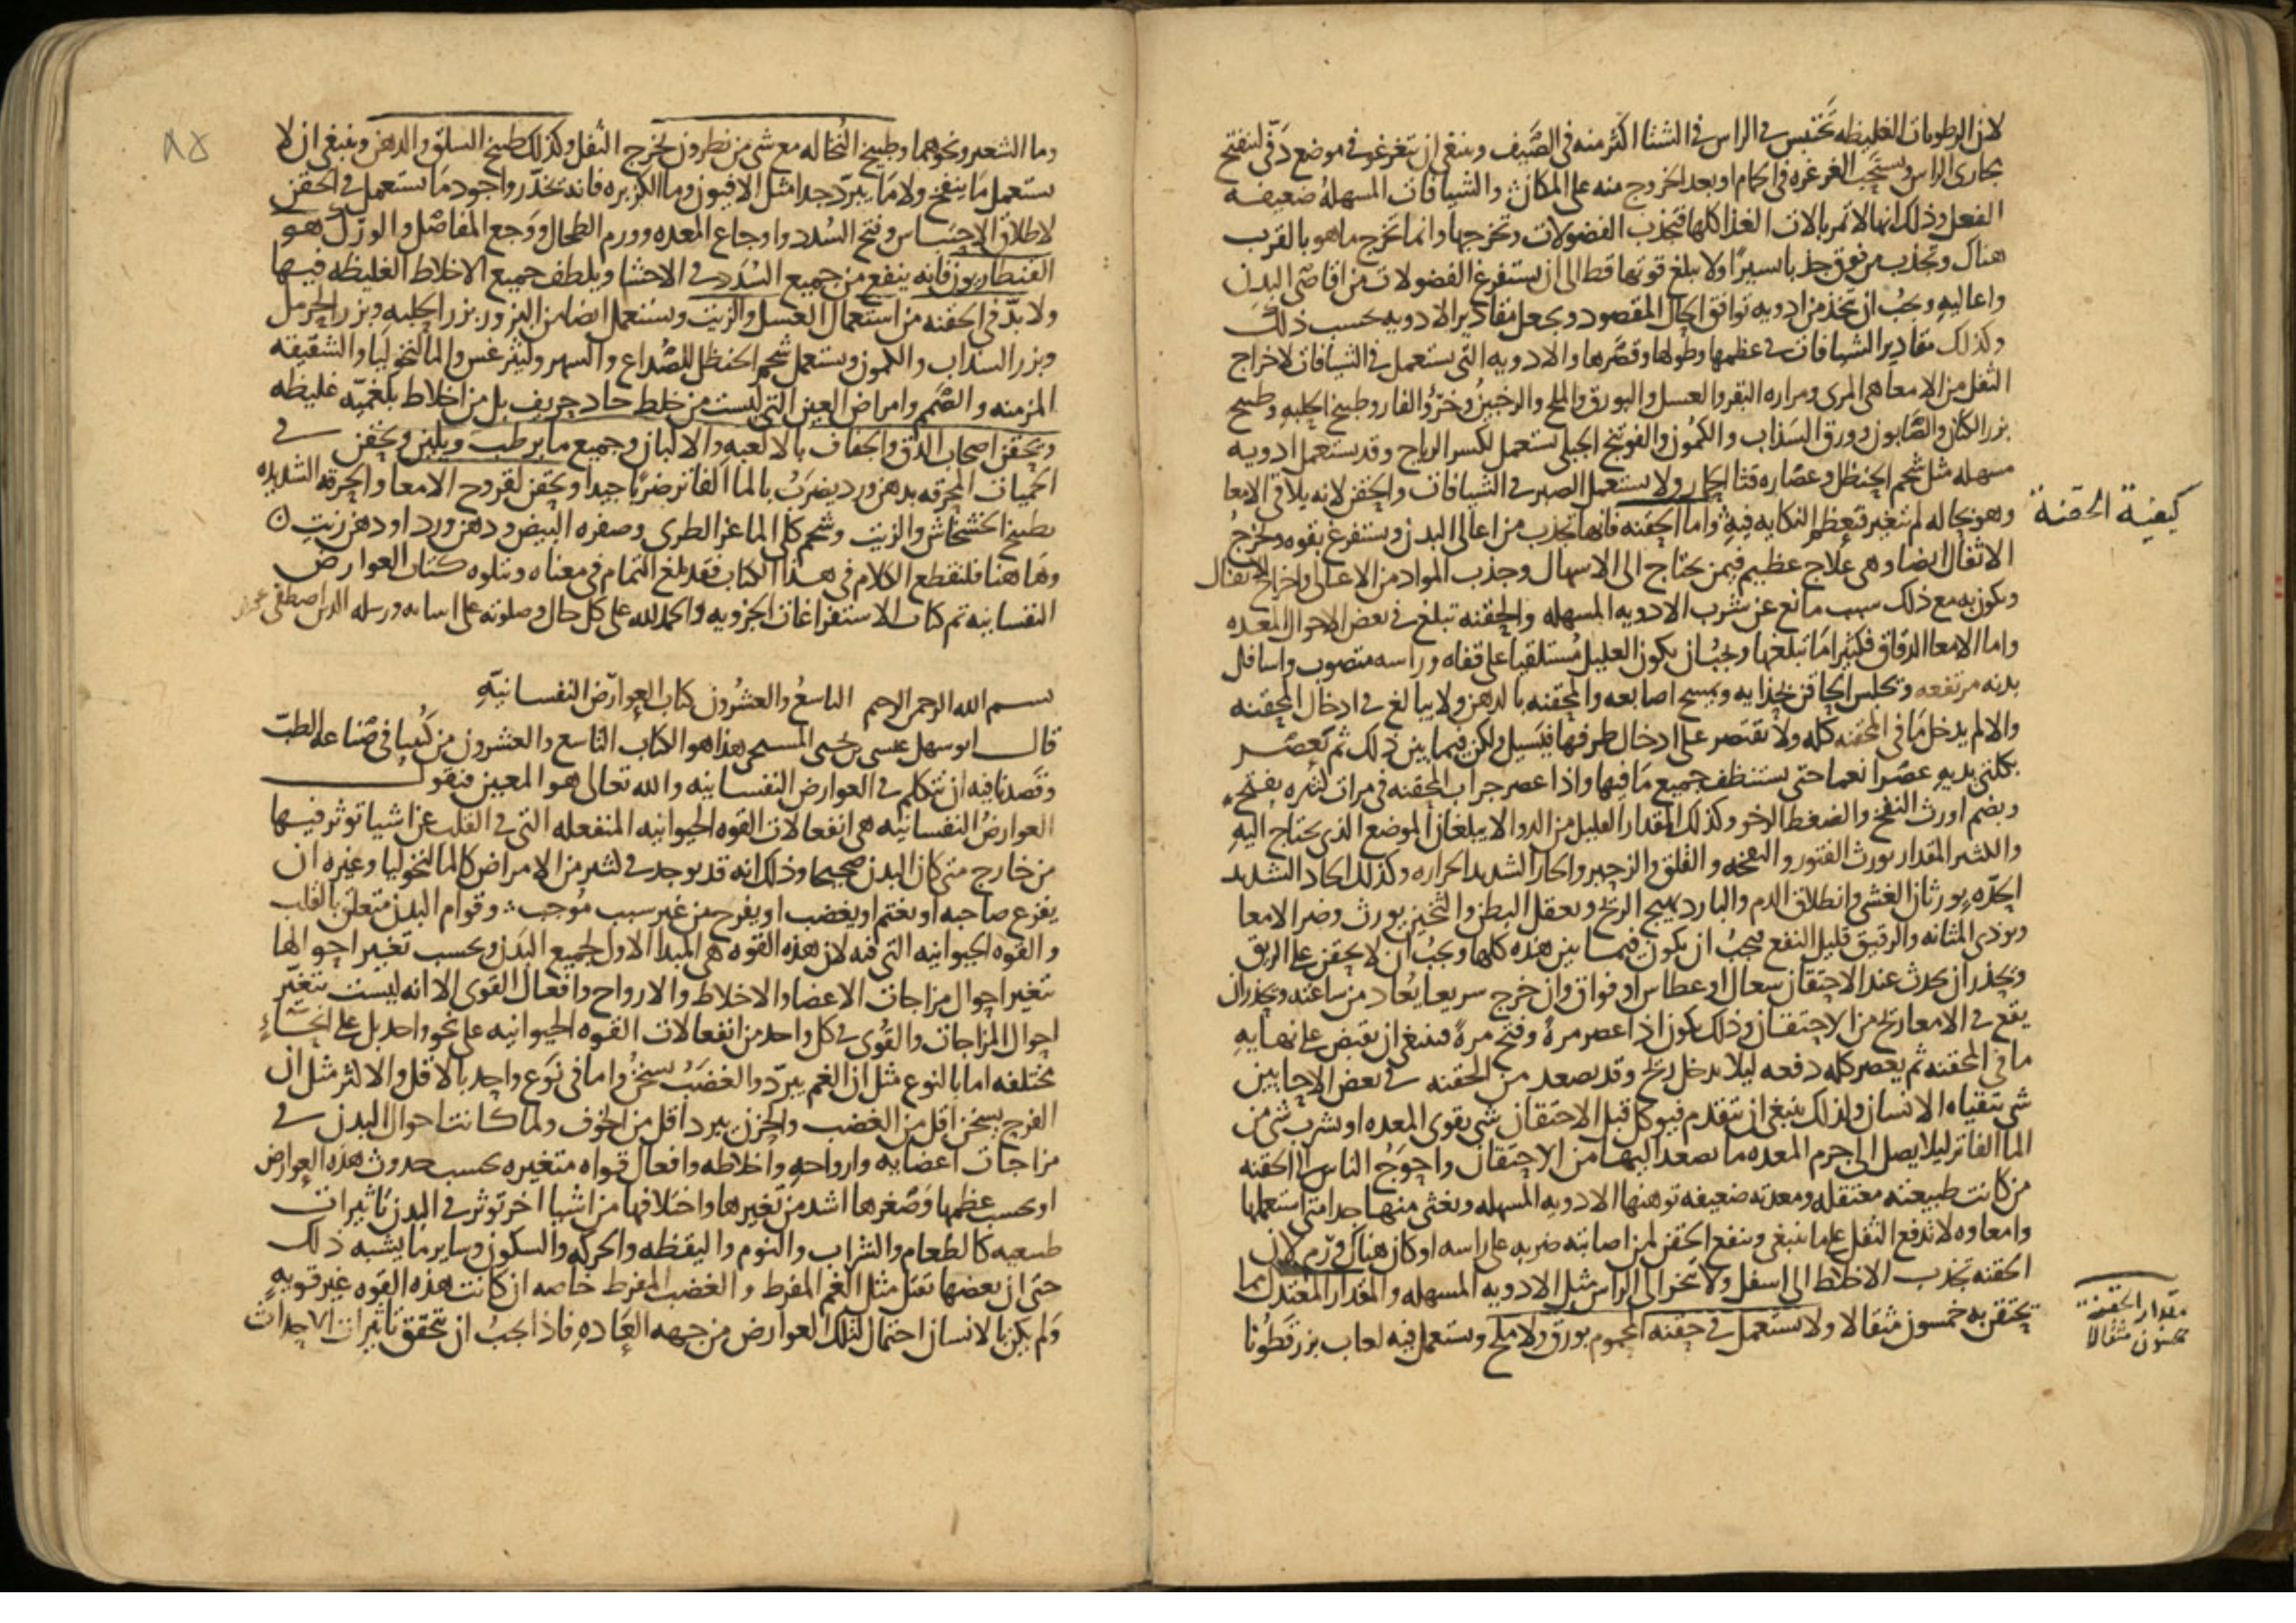 لان الرطوبات الغليظه تحتبس في الراس في الشتا اكثر منه في الصيف وينبغي ان يتغرغر في موضع دفي لتنفتح
مجاري الراس ويستحب الغرغره في الحمام او بعد الخروج منه على المكان والشيافات المسهله ضعيفه
الفعل وذلك انها لا تمر بالات الغذا كلها فتجذب الفضولات وتخرجها وانما تخرج ما هو بالقرب
هناك وتجذب من فوق جذبا يسيرا ولا يبلغ قوتها قط الى ان يستفرغ الفضولات من اقاصي البدن
واعاليه ويجب ان تتخذ من ادويه توافق الحال المقصود ويجعل مقادير الادويه بحسب ذلك
وكذلك مقادير الشيافات في عظمها وطولها وقصرها والادويه التي يستعمل في الشيافات لاخراج
الثفل من الامعا هي المرى ومراره البقر والعسل والبورق والملح والزنجبيل وخرو الفار وطبيخ الحلبه وطبيخ
بزر الكتان والصابون وورق السذاب والكمون والفوتنج الجبلي يستعمل لكسر الرياح وقد يستعمل ادويه
مسهله مثل شحم الحنظل وعصاره قثا الحمار ولا يستعمل الصبر في الشيافات والحقن لانه يلاقي الامعا
كيفية الحقنة
وهو بحاله لم يتغير فيعظم النكايه فيه واما الحقنه فانها تجذب من اعالي البدن ويستفرغ بقوه ويخرج
الاثفال ايضا وهي علاج عظيم فيمن يحتاج الى الاسهال وجذب المواد من الاعالي واخراج الاثفال
ويكون به مع ذلك سبب مانع عن شرب الادويه المسهله والحقنه تبلغ في بعض الاحوال المعده
واما الامعا الدقاق فكثيرا ما تبلغها ويجب ان يكون العليل مستلقيا على قفاه وراسه منصوب واسافل
بدنه مرتفعه ويجلس الحاقن بحذايه ويمسح اصابعه والمحقنه بالدهن ولا يبالغ في ادخال المحقنه
والا لم يدخل ما في المحقنه كله ولا تقتصر على ادخال طرفها فيسيل ولكن فيما بين ذلك ثم تعصر
بكلتي يديه عصرا نعما حتى يستنظف جميع ما فيها واذا عصر جراب المحقنه في مرات كثيره بفتح
وبضم اورث النفخ والضغط الرخو وكذلك المقدار القليل من الدوا لا يبلغ الموضع الذي يحتاج اليه
والكثير المقدار يورث الفتور والنفخه والقلق والزحير والحار الشديد الحراره وكذلك الحاد الشديد
الحده يورثان الغشي وانطلاق الدم والبارد يهيج الريح ويعقل البطن والثخين يورث وضر الامعا
ويوذي المثانه والرقيق قليل النفع فيجب ان يكون فيما بين هذه كلها ويجب ان لا يحقن على الريق
ويحذر ان يحدث عند الاحتقان سعال او عطاس او فواق وان خرج سريعا يعاد من ساعته ويحذر ان
يقع في الامعا ريح من الاحتقان وذلك يكون اذا عصر مره وفتح مره فينبغي ان يقبض على نهايه
ما في المحقنه ثم يعصر كله دفعه ليلا يدخل ريح وقد يصعد من الحقنه في بعض الاحايين
شي يتقياه الانسان ولذلك ينبغي ان يتقدم فيوكل قبل الاحتقان شي يقوي المعده او يشرب شي من
الما الفاتر ليلا يصل الى جرم المعده ما يصعد اليها من الاحتقان واحوج الناس الى الحقنه
من كانت طبيعته معتقله ومعدته ضعيفه توهنها الادويه المسهله ويغثي منها جدا متى استعملها
وامعاوه لا تدفع الثفل على ما ينبغي وينفع الحقن لمن اصابته ضربه على راسه او كان هناك ورم لان
الحقنه تجذب الاخلاط الى اسفل ولا تبخر الى الراس مثل الادويه المسهله والمقدار المعتدل مما
يحتقن به خمسون مثقالا ولا يستعمل في حقنه المحموم بورق ولا ملح ويستعمل فيه لعاب بزر قطونا
مقدار الحقنة
خمسون مثقالا
٨٥
وما الشعير ونحوهما وطبيخ النخاله مع شي من نطرون يخرج الثفل وكذلك طبيخ السلق والدهن وينبغي ان لا
يستعمل ما ينفخ ولا ما يبرد جدا مثل الافيون وما الكزبره فانه يخدر واجود ما يستعمل في الحقن
لاطلاق الاحتباس وفتح السدد واوجاع المعده وورم الطحال ووجع المفاصل والورك هو
القنطاريون فانه ينفع من جميع السدد في الاحشا ويلطف جميع الاخلاط الغليظه فيها
ولا بد في الحقنه من استعمال العسل والزيت ويستعمل ايضا من البزور بزر الحلبه وبزر الحرمل
وبزر السداب والكمون ويستعمل شحم الحنظل للصداع والسهر وليثرغس والمالنخوليا والشقيقه
المزمنه والصمم وامراض العين التي ليست من خلط حاد حريف بل من اخلاط بلغميه غليظه
ويحقن اصحاب الدق والجفاف بالالعبه والالبان وجميع ما يرطب ويلين ويحقن في
الحميات المحرقه بدهن ورد يضرب بالما الفاتر ضربا جيدا ويحقن لقروح الامعا والحرقه الشديده
بطبيخ الخشخاش والزيت وشحم كلى الماعز الطري وصفره البيض ودهن ورد او دهن زيت
وهاهنا فلنقطع الكلام في هذا الكتاب فقد بلغ التمام في معناه ويتلوه كتاب العوارض
النفسانيه تم كتاب الاستفراغات الجزويه والحمد لله على كل حال وصلوته على انبيايه ورسله الذين اصطفى
بسم الله الرحمن الرحيم التاسع والعشرون كتاب العوارض النفسانيه
قال ابو سهل عيسى بن يحيى المسيحي هذا هو الكتاب التاسع والعشرون من كتبنا في صناعه الطب
وقصدنا فيه ان نتكلم في العوارض النفسانيه والله تعالى هو المعين فنقول
العوارض النفسانيه هي انفعالات القوه الحيوانيه المنفعله التي في القلب عن اشيا توثر فيها
من خارج متى كان البدن صحيحا وذلك انه قد يوجد في كثير من الامراض كالمالنخوليا وغيره ان
يفزع صاحبه او يغتم او يغضب او يفرح من غير سبب موجب وقوام البدن متعلق بالقلب
والقوه الحيوانيه التي فيه لان هذه القوه هي المبدا الاول لجميع البدن وبحسب تغير احوالها
تتغير احوال مزاجات الاعضا والاخلاط والارواح وافعال القوى الا انه ليست تتغير
احوال المزاجات والقوى في كل واحد من انفعالات القوه الحيوانيه على نحو واحد بل على انحاء
مختلفه اما بالنوع مثل ان الغم يبرد والغضب يسخن واما في نوع واحد بالاقل والاكثر مثل ان
الفرح يسخن اقل من الغضب والحزن يبرد اقل من الخوف ولما كانت احوال البدن في
مزاجات اعضايه وارواحه واخلاطه وافعال قواه متغيره بحسب حدوث هذه العوارض
او بحسب عظمها وصغرها اشد من تغيرها واختلافها من اشيا اخر توثر في البدن تاثيرات
طبيعيه كالطعام والشراب والنوم واليقظه والحركه والسكون وساير ما يشبه ذلك
حتى ان بعضها تقتل مثل الغم المفرط والغضب المفرط خاصه ان كانت هذه القوه غير قويه
ولم يكن بالانسان احتمال لتلك العوارض من جهه العاده فاذا يجب ان تحقق تاثيرات الاحداث